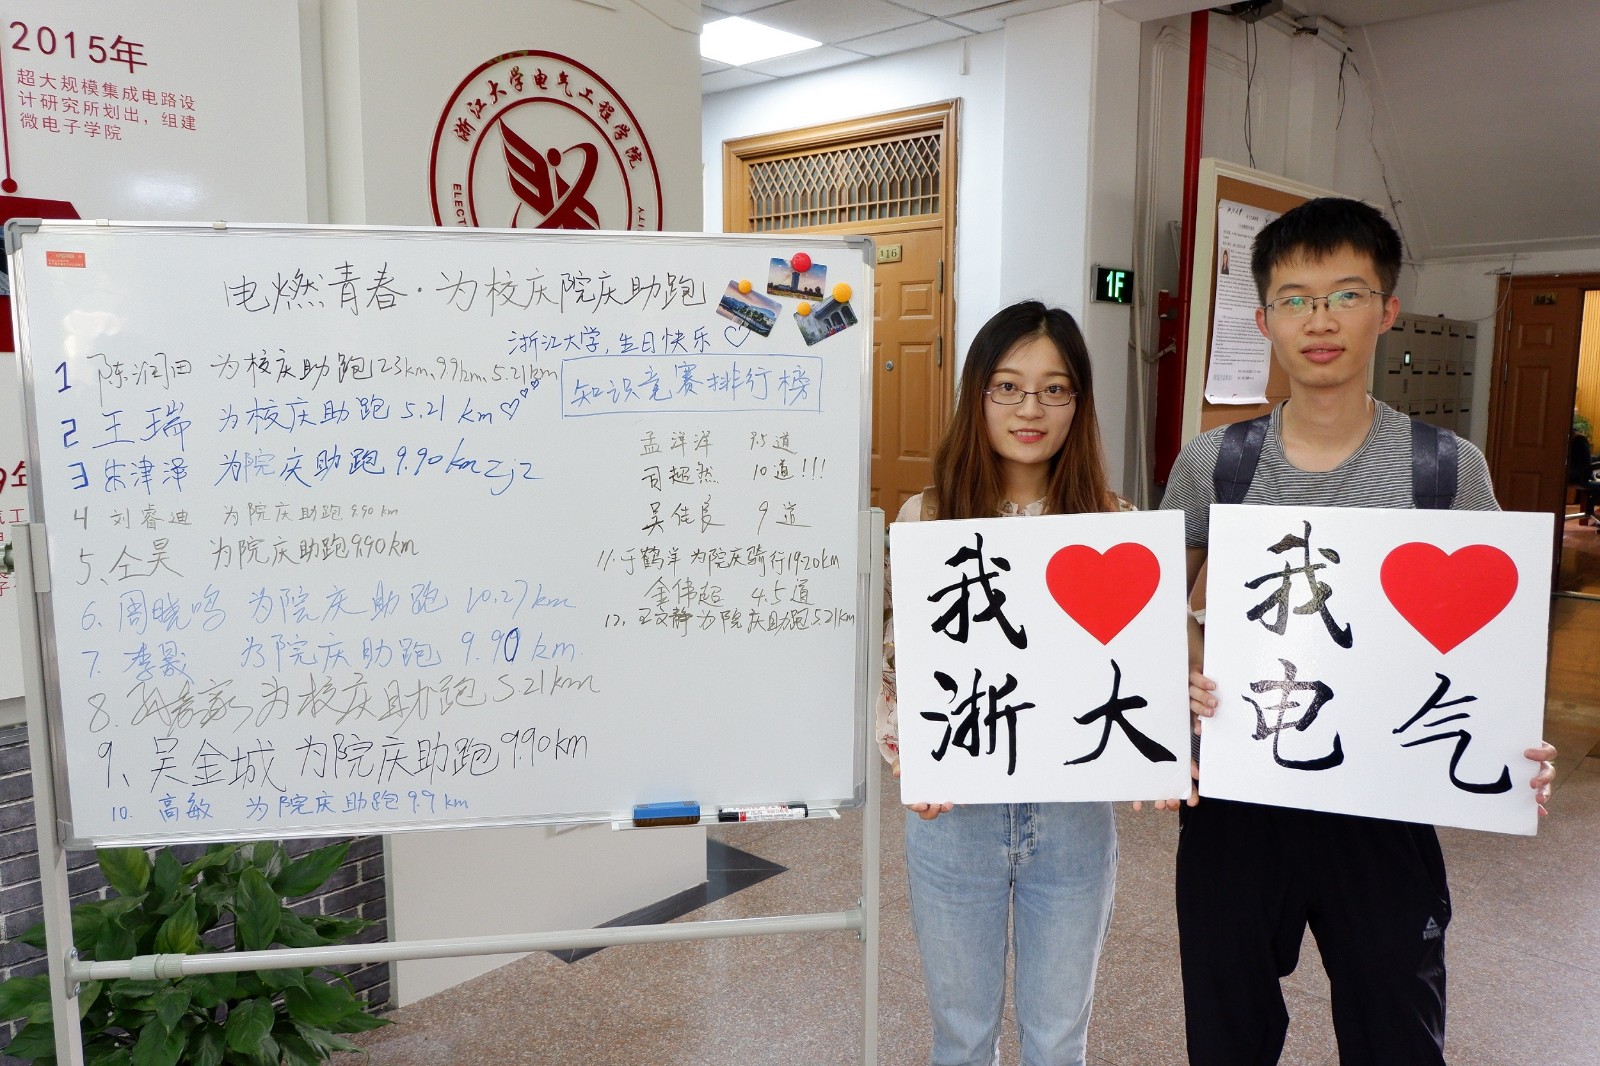 2015年
超大规模集成电路设
计研究所划出，组建
微电子学院
浙江大学电气工程学院
ELECT
116
1F
电燃青春·为校庆院庆助跑
浙江大学,生日快乐♡
1 陈润田 为校庆助跑23km、99km、5.21km
2 王瑞 为校庆助跑 5.21 km♡
3 朱津泽 为院庆助跑 9.90km zjz
4 刘睿迪 为院庆助跑 9.90 km
5、仝昊 为院庆助跑9.90km
6. 周晓鸣 为院庆助跑 10.27km
7. 李晟 为院庆助跑 9.90km.
8. 为校庆助跑 5.21km
9、吴金城 为院庆助跑9.90km
10. 高敏 为院庆助跑9.9km
知识竞赛排行榜
孟洋洋 7.5道
司超然 10道!!!
吴佳良 9道
11.于鹤洋为院庆骑行19.20km
金伟超 4.5道
12.王文静为院庆助跑5.21km
我♥
浙大
我♥
电气